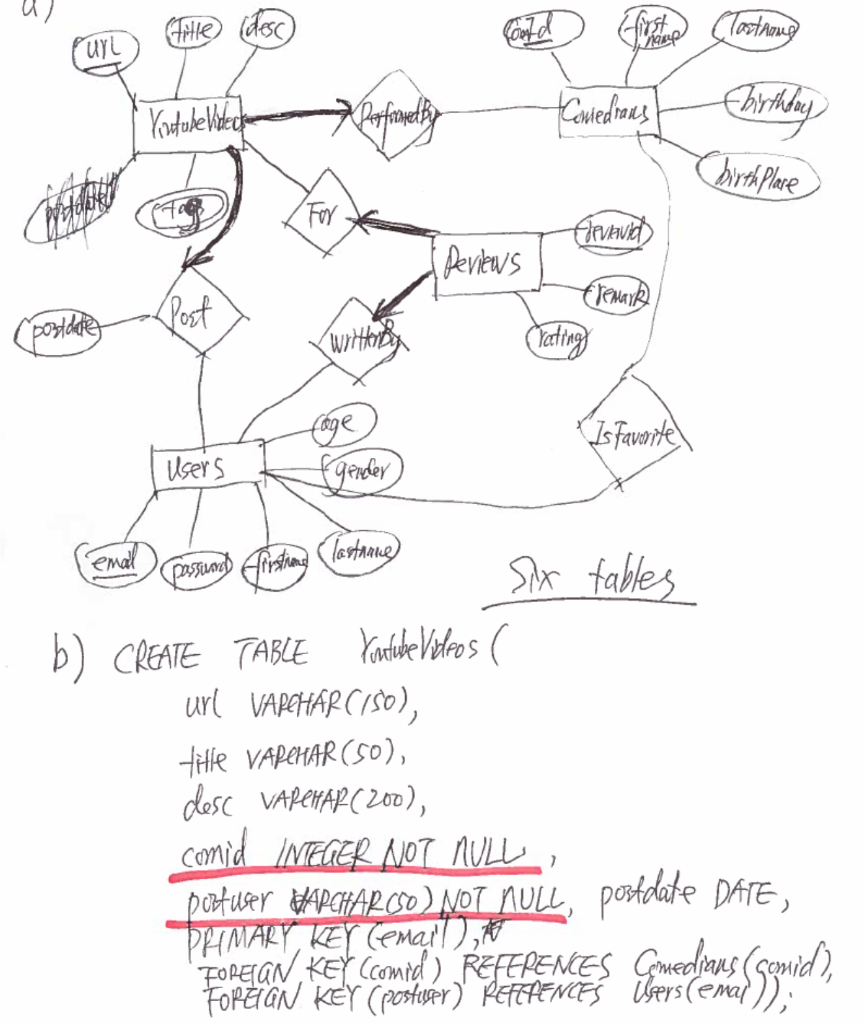 a)
url title desc
comId first name lastname
YoutubeVideos PerformedBy Comedians birthday
birthPlace
postdate tags For
Reviews reviewid
remark
rating
postdate Post WrittenBy
IsFavorite
age
Users gender
email password firstname lastname
Six tables
b) CREATE TABLE YoutubeVideos (
url VARCHAR(150),
title VARCHAR(50),
desc VARCHAR(200),
comid INTEGER NOT NULL,
postuser VARCHAR(50) NOT NULL, postdate DATE,
PRIMARY KEY (email),
FOREIGN KEY (comid) REFERENCES Comedians(comid),
FOREIGN KEY (postuser) REFERENCES Users(email));